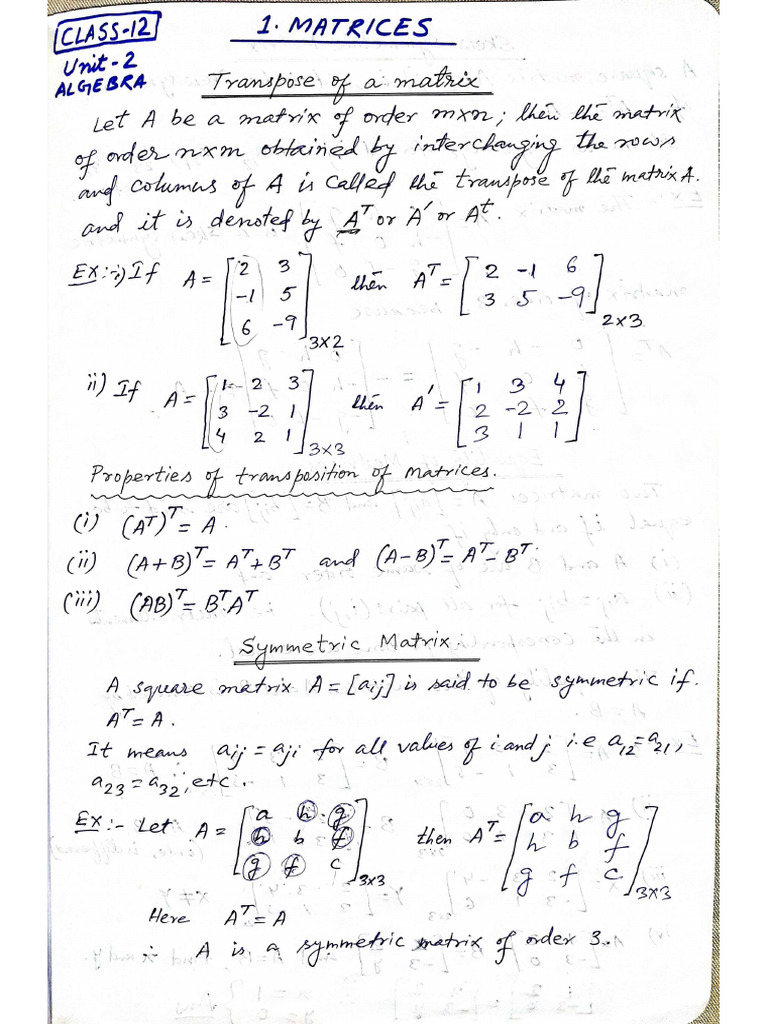 CLASS-12
1. MATRICES
Unit-2
ALGEBRA
Transpose of a matrix
Let A be a matrix of order m×n; then the matrix
of order n×m obtained by interchanging the rows
and columns of A is called the transpose of the matrix A.
and it is denoted by Aᵀ or A′ or Aᵗ.
Ex:- i) If A = [2 3; -1 5; 6 -9]3×2 then Aᵀ = [2 -1 6; 3 5 -9]2×3
ii) If A = [1 2 3; 3 -2 1; 4 2 1]3×3 then A′ = [1 3 4; 2 -2 2; 3 1 1]
Properties of transposition of Matrices.
(i) (Aᵀ)ᵀ = A.
(ii) (A+B)ᵀ = Aᵀ+Bᵀ and (A-B)ᵀ = Aᵀ-Bᵀ.
(iii) (AB)ᵀ = BᵀAᵀ
Symmetric Matrix.
A square matrix A = [aij] is said to be symmetric if
Aᵀ = A.
It means aij = aji for all values of i and j i.e a12 = a21,
a23 = a32, etc.
Ex:- Let A = [a h g; h b f; g f c]3×3 then Aᵀ = [a h g; h b f; g f c]3×3
Here Aᵀ = A
∴ A is a symmetric matrix of order 3.